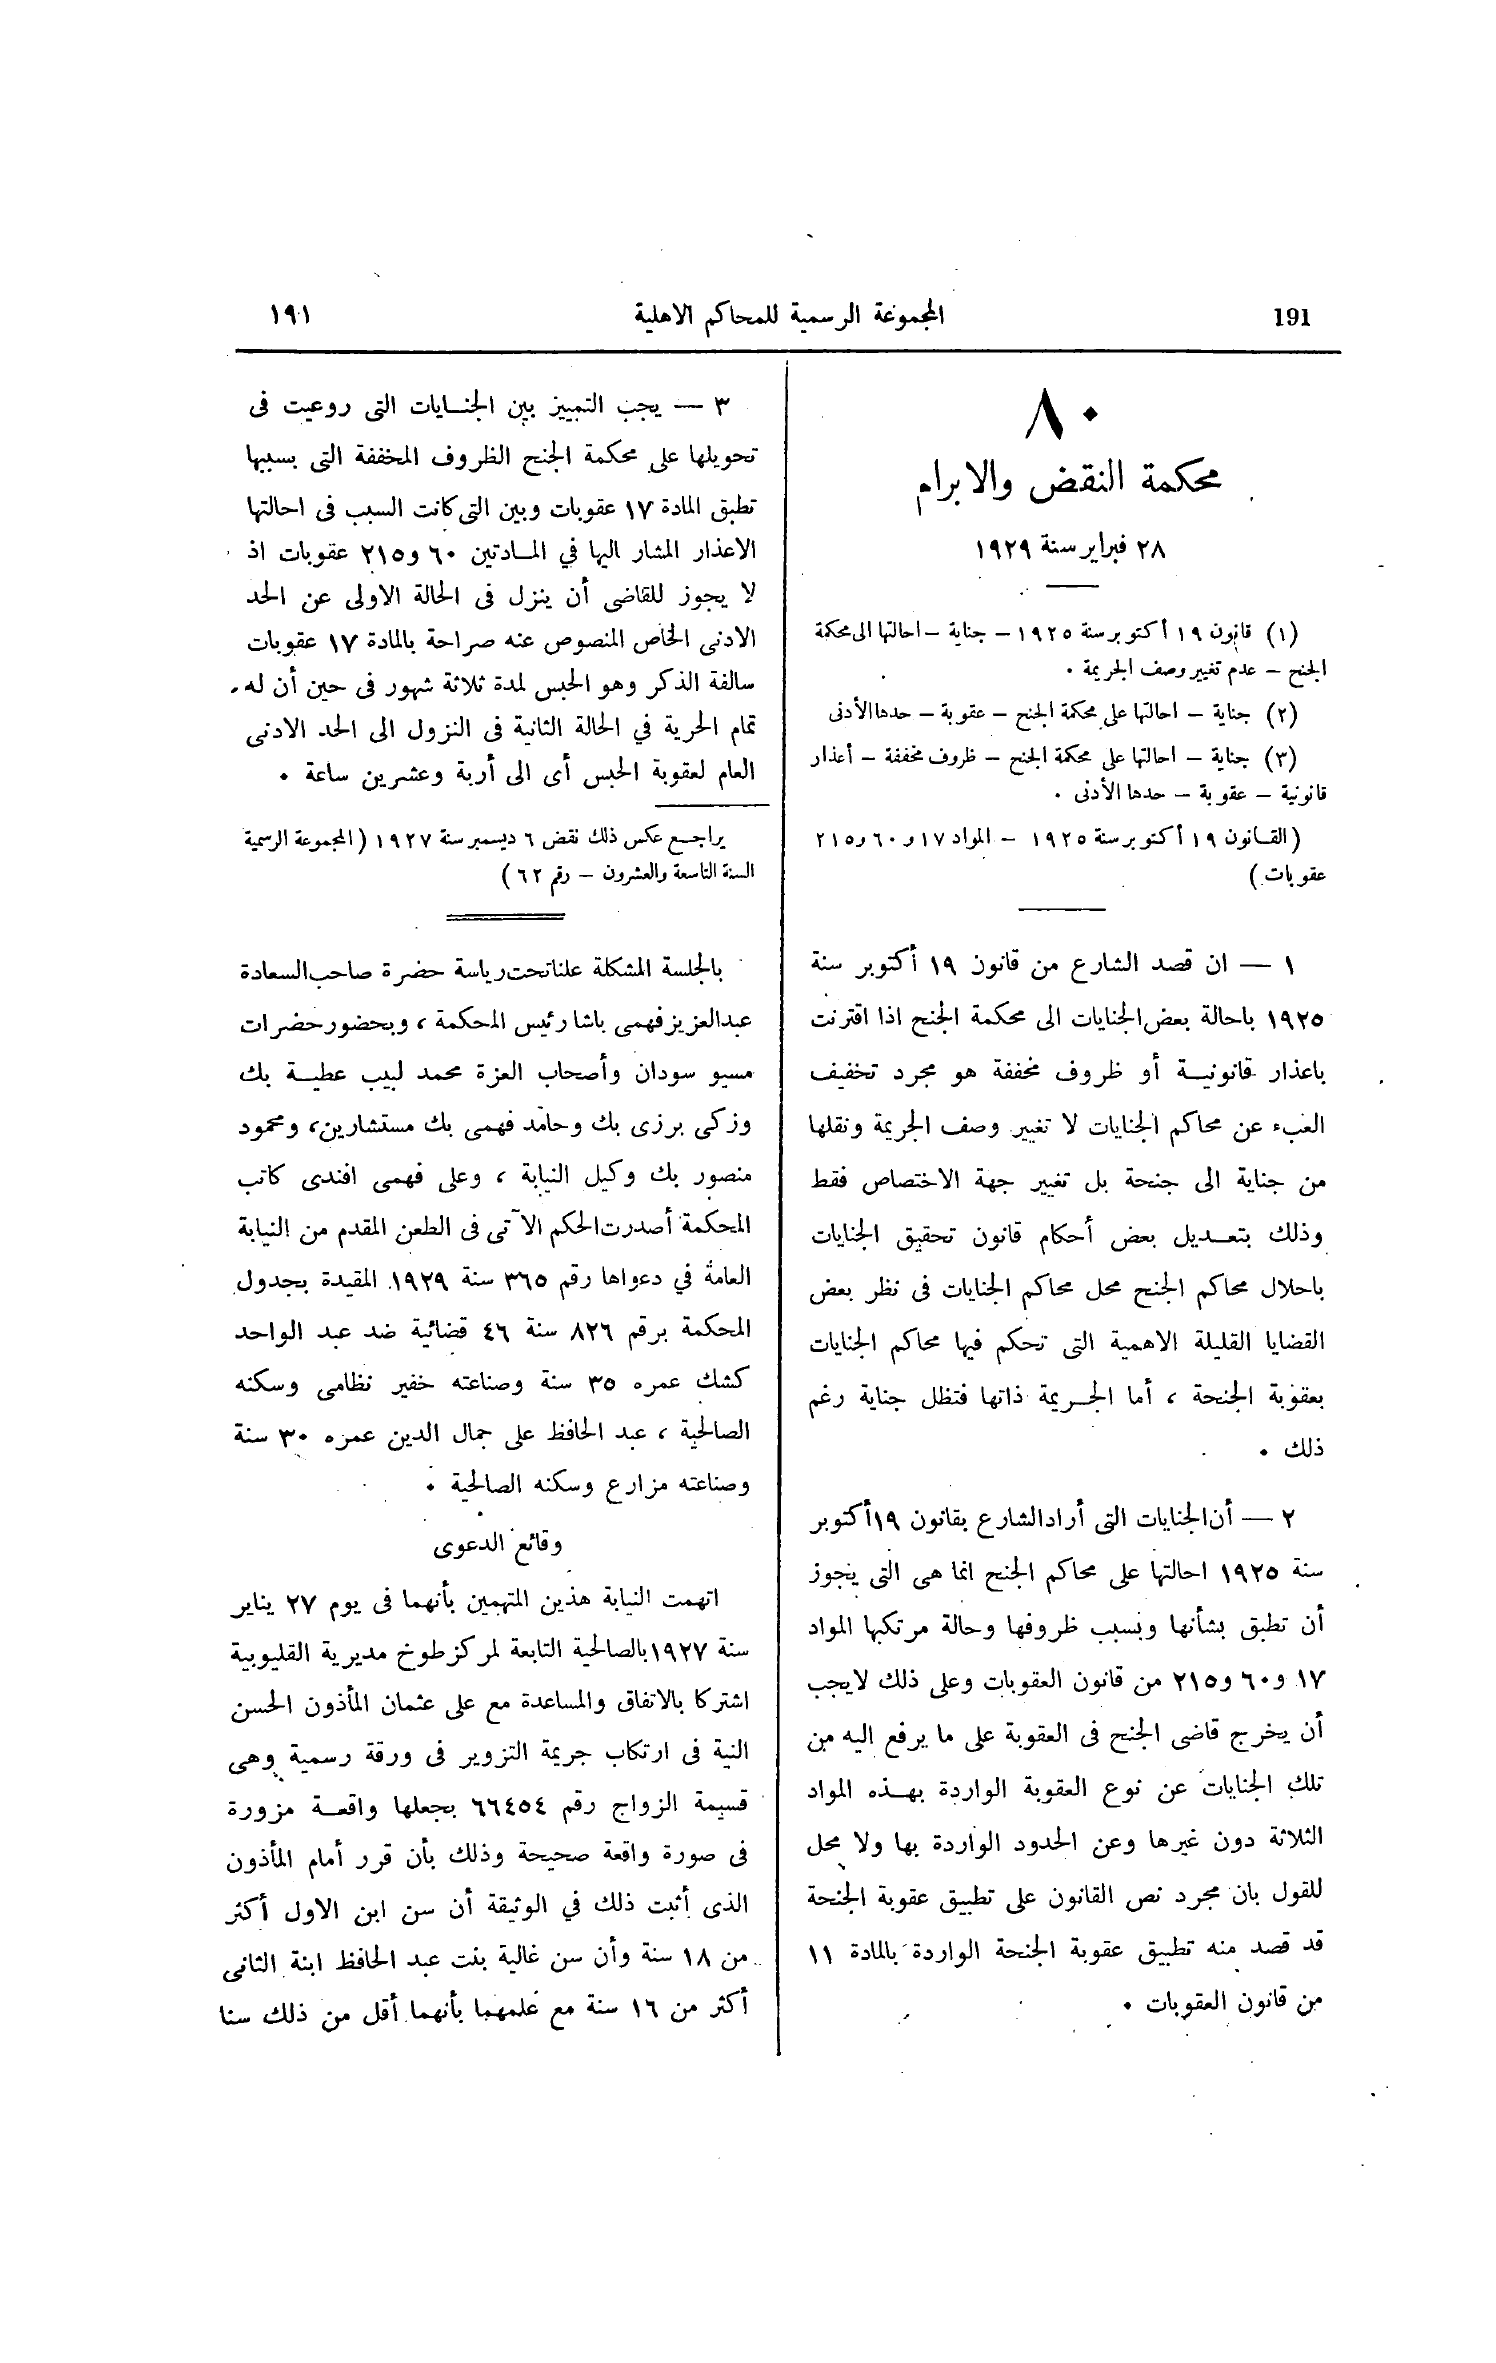 191
المجموعة الرسمية للمحاكم الاهلية
١٩١
٨٠
محكمة النقض والابرام
٢٨ فبراير سنة ١٩٢٩
(١) قانون ١٩ أكتوبر سنة ١٩٢٥ – جناية – احالتها الى محكمة
الجنح – عدم تغيير وصف الجريمة .
(٢) جناية – احالتها على محكمة الجنح – عقوبة – حدها الأدنى
(٣) جناية – احالتها على محكمة الجنح – ظروف مخففة – أعذار
قانونية – عقوبة – حدها الأدنى .
(القانون ١٩ أكتوبر سنة ١٩٢٥ – المواد ١٧ و ٦٠ و ٢١٥
عقوبات)
١ — ان قصد الشارع من قانون ١٩ أكتوبر سنة
١٩٢٥ باحالة بعض الجنايات الى محكمة الجنح اذا اقترنت
باعذار قانونية أو ظروف مخففة هو مجرد تخفيف
العبء عن محاكم الجنايات لا تغيير وصف الجريمة ونقلها
من جناية الى جنحة بل تغيير جهة الاختصاص فقط
وذلك بتعديل بعض أحكام قانون تحقيق الجنايات
باحلال محاكم الجنح محل محاكم الجنايات فى نظر بعض
القضايا القليلة الاهمية التى تحكم فيها محاكم الجنايات
بعقوبة الجنحة ، أما الجريمة ذاتها فتظل جناية رغم
ذلك .
٢ — أن الجنايات التى أراد الشارع بقانون ١٩ أكتوبر
سنة ١٩٢٥ احالتها على محاكم الجنح انما هى التى يجوز
أن تطبق بشأنها وبسبب ظروفها وحالة مرتكبها المواد
١٧ و ٦٠ و ٢١٥ من قانون العقوبات وعلى ذلك لايجب
أن يخرج قاضى الجنح فى العقوبة على ما يرفع اليه من
تلك الجنايات عن نوع العقوبة الواردة بهذه المواد
الثلاثة دون غيرها وعن الحدود الواردة بها ولا محل
للقول بان مجرد نص القانون على تطبيق عقوبة الجنحة
قد قصد منه تطبيق عقوبة الجنحة الواردة بالمادة ١١
من قانون العقوبات .
٣ — يجب التمييز بين الجنايات التى روعيت فى
تحويلها على محكمة الجنح الظروف المخففة التى بسببها
تطبق المادة ١٧ عقوبات وبين التى كانت السبب فى احالتها
الاعذار المشار اليها في المادتين ٦٠ و ٢١٥ عقوبات اذ
لا يجوز للقاضى أن ينزل فى الحالة الاولى عن الحد
الادنى الخاص المنصوص عنه صراحة بالمادة ١٧ عقوبات
سالفة الذكر وهو الحبس لمدة ثلاثة شهور فى حين أن له
تمام الحرية في الحالة الثانية فى النزول الى الحد الادنى
العام لعقوبة الحبس أى الى أربة وعشرين ساعة .
يراجع عكس ذلك نقض ٦ ديسمبر سنة ١٩٢٧ (المجموعة الرسمية
السنة التاسعة والعشرون – رقم ٦٢)
بالجلسة المشكلة علنا تحت رياسة حضرة صاحب السعادة
عبد العزيز فهمى باشا رئيس المحكمة ، وبحضور حضرات
مسيو سودان وأصحاب العزة محمد لبيب عطية بك
وزكى برزى بك وحامد فهمى بك مستشارين، ومحمود
منصور بك وكيل النيابة ، وعلى فهمى افندى كاتب
المحكمة أصدرت الحكم الآتى فى الطعن المقدم من النيابة
العامة في دعواها رقم ٣٦٥ سنة ١٩٢٩ المقيدة بجدول
المحكمة برقم ٨٢٦ سنة ٤٦ قضائية ضد عبد الواحد
كشك عمره ٣٥ سنة وصناعته خفير نظامى وسكنه
الصالحية ، عبد الحافظ على جمال الدين عمره ٣٠ سنة
وصناعته مزارع وسكنه الصالحية .
وقائع الدعوى
اتهمت النيابة هذين المتهمين بأنهما فى يوم ٢٧ يناير
سنة ١٩٢٧ بالصالحية التابعة لمركز طوخ مديرية القليوبية
اشتركا بالاتفاق والمساعدة مع على عثمان المأذون الحسن
النية فى ارتكاب جريمة التزوير فى ورقة رسمية وهى
قسيمة الزواج رقم ٦٦٤٥٤ بجعلها واقعة مزورة
فى صورة واقعة صحيحة وذلك بأن قرر أمام المأذون
الذى أثبت ذلك في الوثيقة أن سن ابن الاول أكثر
من ١٨ سنة وأن سن غالية بنت عبد الحافظ ابنة الثانى
أكثر من ١٦ سنة مع علمهما بأنهما أقل من ذلك سنا